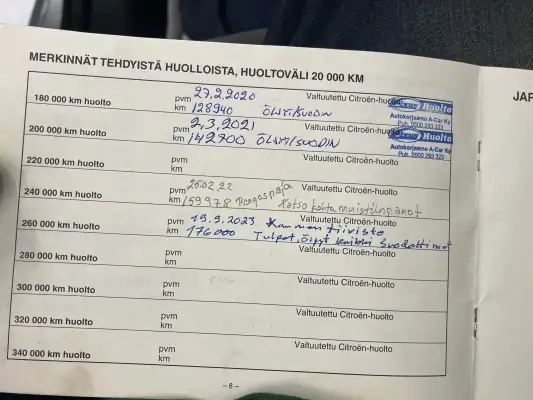 MERKINNÄT TEHDYISTÄ HUOLLOISTA, HUOLTOVÄLI 20 000 KM
JAR
180 000 km huolto pvm 27.2.2020 Valtuutettu Citroën-huolto
km 128940 ÖLJYT/SUODIN
Huolto
Autokorjaamo A-Car Ky
Puh. 0500 293 323
200 000 km huolto pvm 2.3.2021 Valtuutettu Citroën-huolto
km 142700 ÖLJYT/SUODIN
Huolto
Autokorjaamo A-Car Ky
Puh. 0500 293 323
220 000 km huolto pvm Valtuutettu Citroën-huolto
km
240 000 km huolto pvm 25.02.22 Valtuutettu Citroën-huolto
km 159978 Rengaspaja Katso kohta muistiinpanot
260 000 km huolto pvm 19.9.2023 Valtuutettu Citroën-huolto
Kannen tiiviste
km 176000 Tulpat, öljyt kaikki suodattimet
280 000 km huolto pvm Valtuutettu Citroën-huolto
km
300 000 km huolto pvm Valtuutettu Citroën-huolto
km
320 000 km huolto pvm Valtuutettu Citroën-huolto
km
340 000 km huolto pvm Valtuutettu Citroën-huolto
km
– 8 –